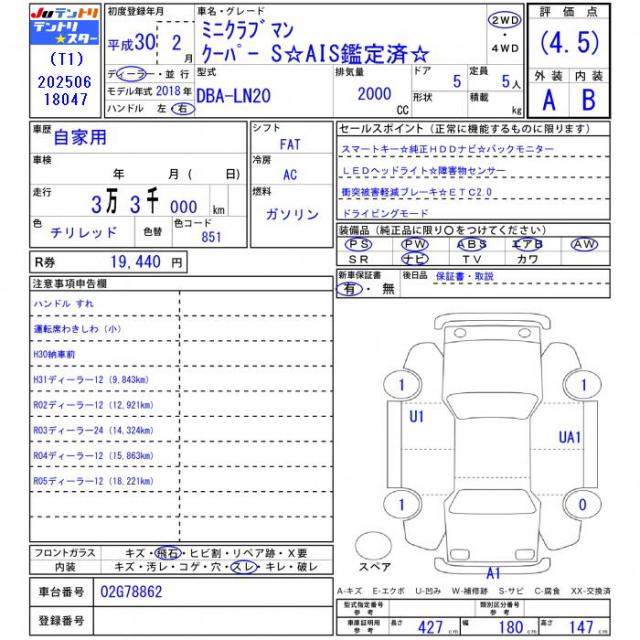 JUテントリ
テントリ
☆スター
(T1)
202506
18047
初度登録年月
平成30 2
月
ディーラー・並行
モデル年式 2018年
ハンドル 左・右
車名・グレード
ミニクラブマン
クーパー S☆AIS鑑定済☆
2WD
・
4WD
型式
DBA-LN20
排気量
2000
CC
ドア 5
形状
定員 5人
積載 kg
評価点
(4.5)
外装 内装
A B
車歴
自家用
車検
年 月 ( 日)
走行
3万 3千 000 km
色
チリレッド
色替
色コード
851
シフト
FAT
冷房
AC
燃料
ガソリン
R券 19,440 円
セールスポイント(正常に機能するものに限ります)
スマートキー☆純正HDDナビ☆バックモニター
LEDヘッドライト☆障害物センサー
衝突被害軽減ブレーキ☆ETC2.0
ドライビングモード
装備品(純正品に限り○をつけてください)
PS PW ABS エアB AW
SR ナビ TV カワ
新車保証書
有・無
後日品 保証書・取説
注意事項申告欄
ハンドル すれ
運転席わきしわ(小)
H30納車前
H31ディーラー12(9,843km)
R02ディーラー12(12,921km)
R03ディーラー24(14,324km)
R04ディーラー12(15,863km)
R05ディーラー12(18,221km)
フロントガラス キズ・飛石・ヒビ割・リペア跡・X要
内装 キズ・汚レ・コゲ・穴・スレ・キレ・破レ
車台番号 02G78862
登録番号
1
1
U1
UA1
1
0
スペア
A1
A-キズ E-エクボ U-凹み W-補修跡 S-サビ C-腐食 XX-交換済
型式指定番号
参考
類別区分番号
参考
車庫証明用
参考
長さ 427 cm 幅 180 cm 高さ 147 cm